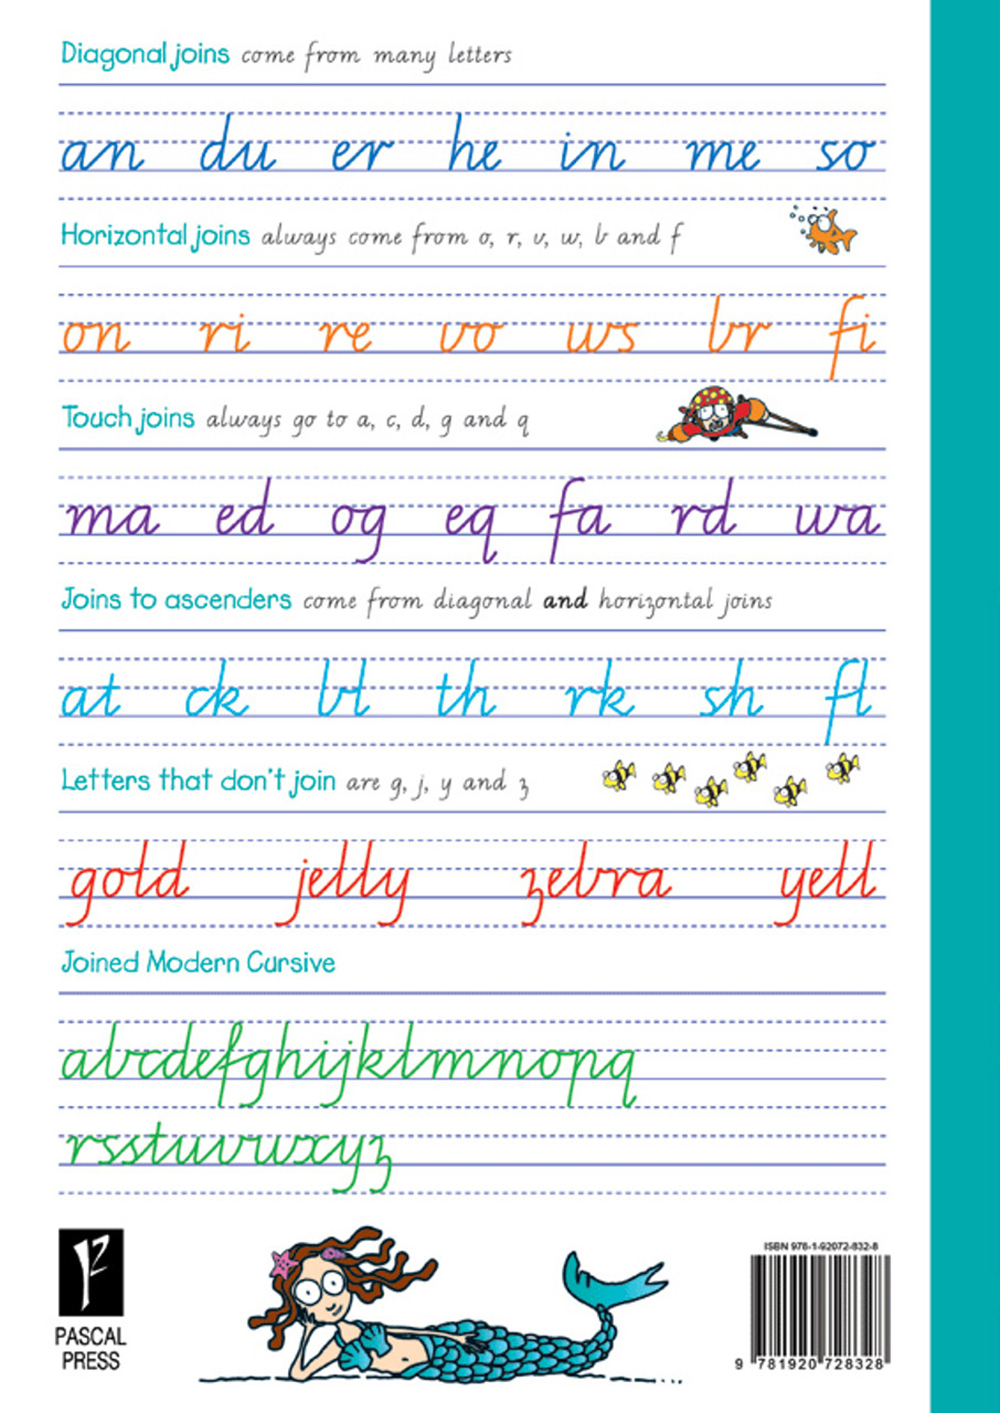 Diagonal joins come from many letters
an du er he in me so
Horizontal joins always come from o, r, v, w, b and f
on ri re vo ws br fi
Touch joins always go to a, c, d, g and q
ma ed og eq fa rd wa
Joins to ascenders come from diagonal and horizontal joins
at ck bl th rk sh fl
Letters that don't join are g, j, y and z
gold jelly zebra yell
Joined Modern Cursive
abcdefghijklmnopq
rsstuvwxyz
PASCAL
PRESS
ISBN 978-1-92072-832-8
9 781920 728328